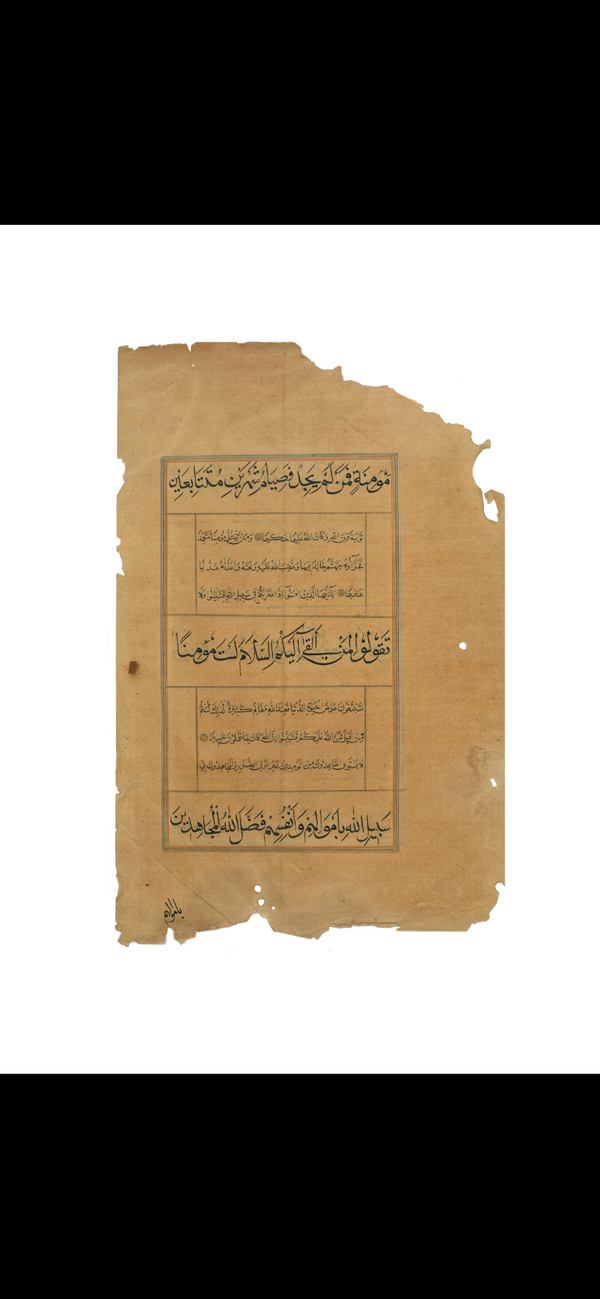 مُؤمِنَةٍ فَمَن لَّمْ يَجِدْ فَصِيَامُ شَهْرَيْنِ مُتَتَابِعَيْنِ
تَوْبَةً مِّنَ اللهِ وَكَانَ اللهُ عَلِيمًا حَكِيمًا وَمَن يَقْتُلْ مُؤمِنًا مُّتَعَمِّدًا
فَجَزَآؤُهُ جَهَنَّمُ خَالِدًا فِيهَا وَغَضِبَ اللهُ عَلَيْهِ وَلَعَنَهُ وَأَعَدَّ لَهُ عَذَابًا
عَظِيمًا يَا أَيُّهَا الَّذِينَ آمَنُوا إِذَا ضَرَبْتُمْ فِي سَبِيلِ اللهِ فَتَبَيَّنُوا وَلَا
تَقُولُوا لِمَنْ أَلْقَى إِلَيْكُمُ السَّلَامَ لَسْتَ مُؤمِنًا
تَبْتَغُونَ عَرَضَ الْحَيٰوةِ الدُّنْيَا فَعِنْدَ اللهِ مَغَانِمُ كَثِيرَةٌ كَذٰلِكَ كُنتُمْ
مِّن قَبْلُ فَمَنَّ اللهُ عَلَيْكُمْ فَتَبَيَّنُوا إِنَّ اللهَ كَانَ بِمَا تَعْمَلُونَ خَبِيرًا
لَا يَسْتَوِي الْقَاعِدُونَ مِنَ الْمُؤْمِنِينَ غَيْرُ أُولِي الضَّرَرِ وَالْمُجَاهِدُونَ فِي
سَبِيلِ اللهِ بِأَمْوَالِهِمْ وَأَنْفُسِهِمْ فَضَّلَ اللهُ الْمُجَاهِدِينَ
بأموالهم